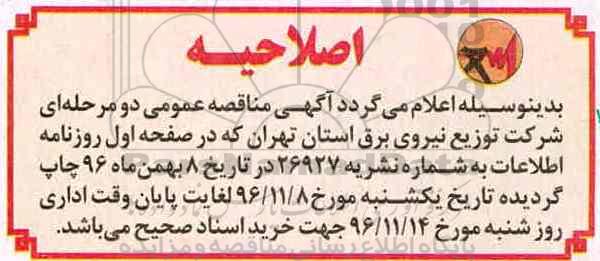 اصلاحیه
بدینوسیله اعلام می‌گردد آگهی مناقصه عمومی دو مرحله‌ای
شرکت توزیع نیروی برق استان تهران که در صفحه اول روزنامه
اطلاعات به شماره نشریه ۲۶۹۲۷ در تاریخ ۸ بهمن ماه ۹۶ چاپ
گردیده تاریخ یکشنبه مورخ ۹۶/۱۱/۸ لغایت پایان وقت اداری
روز شنبه مورخ ۹۶/۱۱/۱۴ جهت خرید اسناد صحیح می‌باشد.
پایگاه اطلاع رسانی مناقصه و مزایده